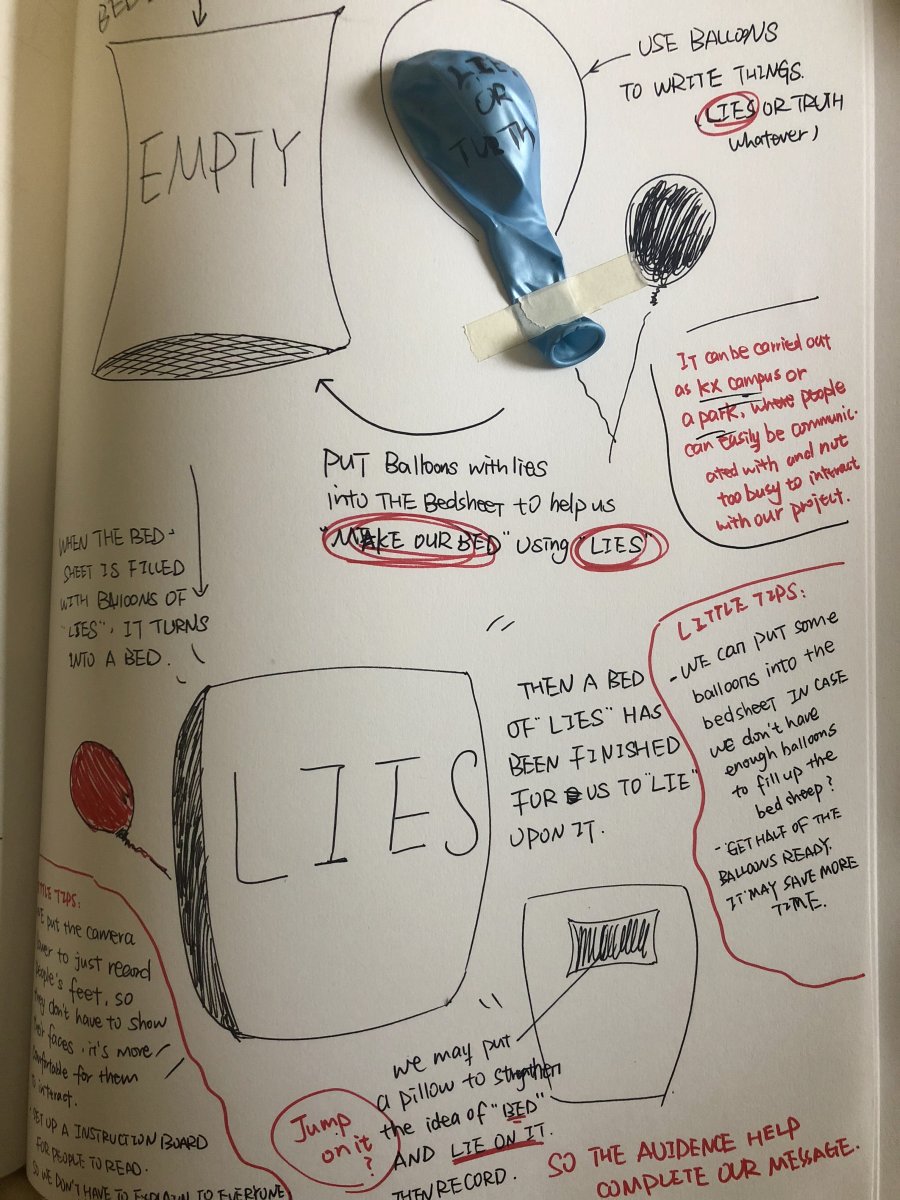 EMPTY
LIE
OR
USE BALLOONS
TO WRITE THINGS.
(LIES OR TRUTH
whatever)
It can be carried out
as KX campus or
a park, where people
can easily be communic-
ated with and not
too busy to interact
with our project.
PUT Balloons with lies
into THE Bedsheet to help us
"MAKE OUR BED" using "LIES"
WHEN THE BED-
SHEET IS FILLED
WITH BALLOONS OF
"LIES", IT TURNS
INTO A BED.
LIES
THEN A BED
OF "LIES" HAS
BEEN FINISHED
FOR US TO "LIE"
UPON IT.
LITTLE TIPS:
- WE CAN PUT some
balloons into the
bedsheet IN CASE
we don't have
enough balloons
to fill up the
bed sheep?
- GET HALF OF THE
BALLOONS READY.
IT MAY SAVE MORE
TIME.
TIPS:
put the camera
to just record
feet, so
don't have to show
faces, it's more
for them
interact.
SET UP A INSTRUCTION BOARD
FOR PEOPLE TO READ.
SO WE DON'T HAVE TO EXPLAIN TO EVERYONE
we may put
a pillow to
the idea of "BED"
AND LIE ON IT.
THEN RECORD.
Jump
on it
?
SO THE AUIDENCE HELP
COMPLETE OUR MESSAGE.